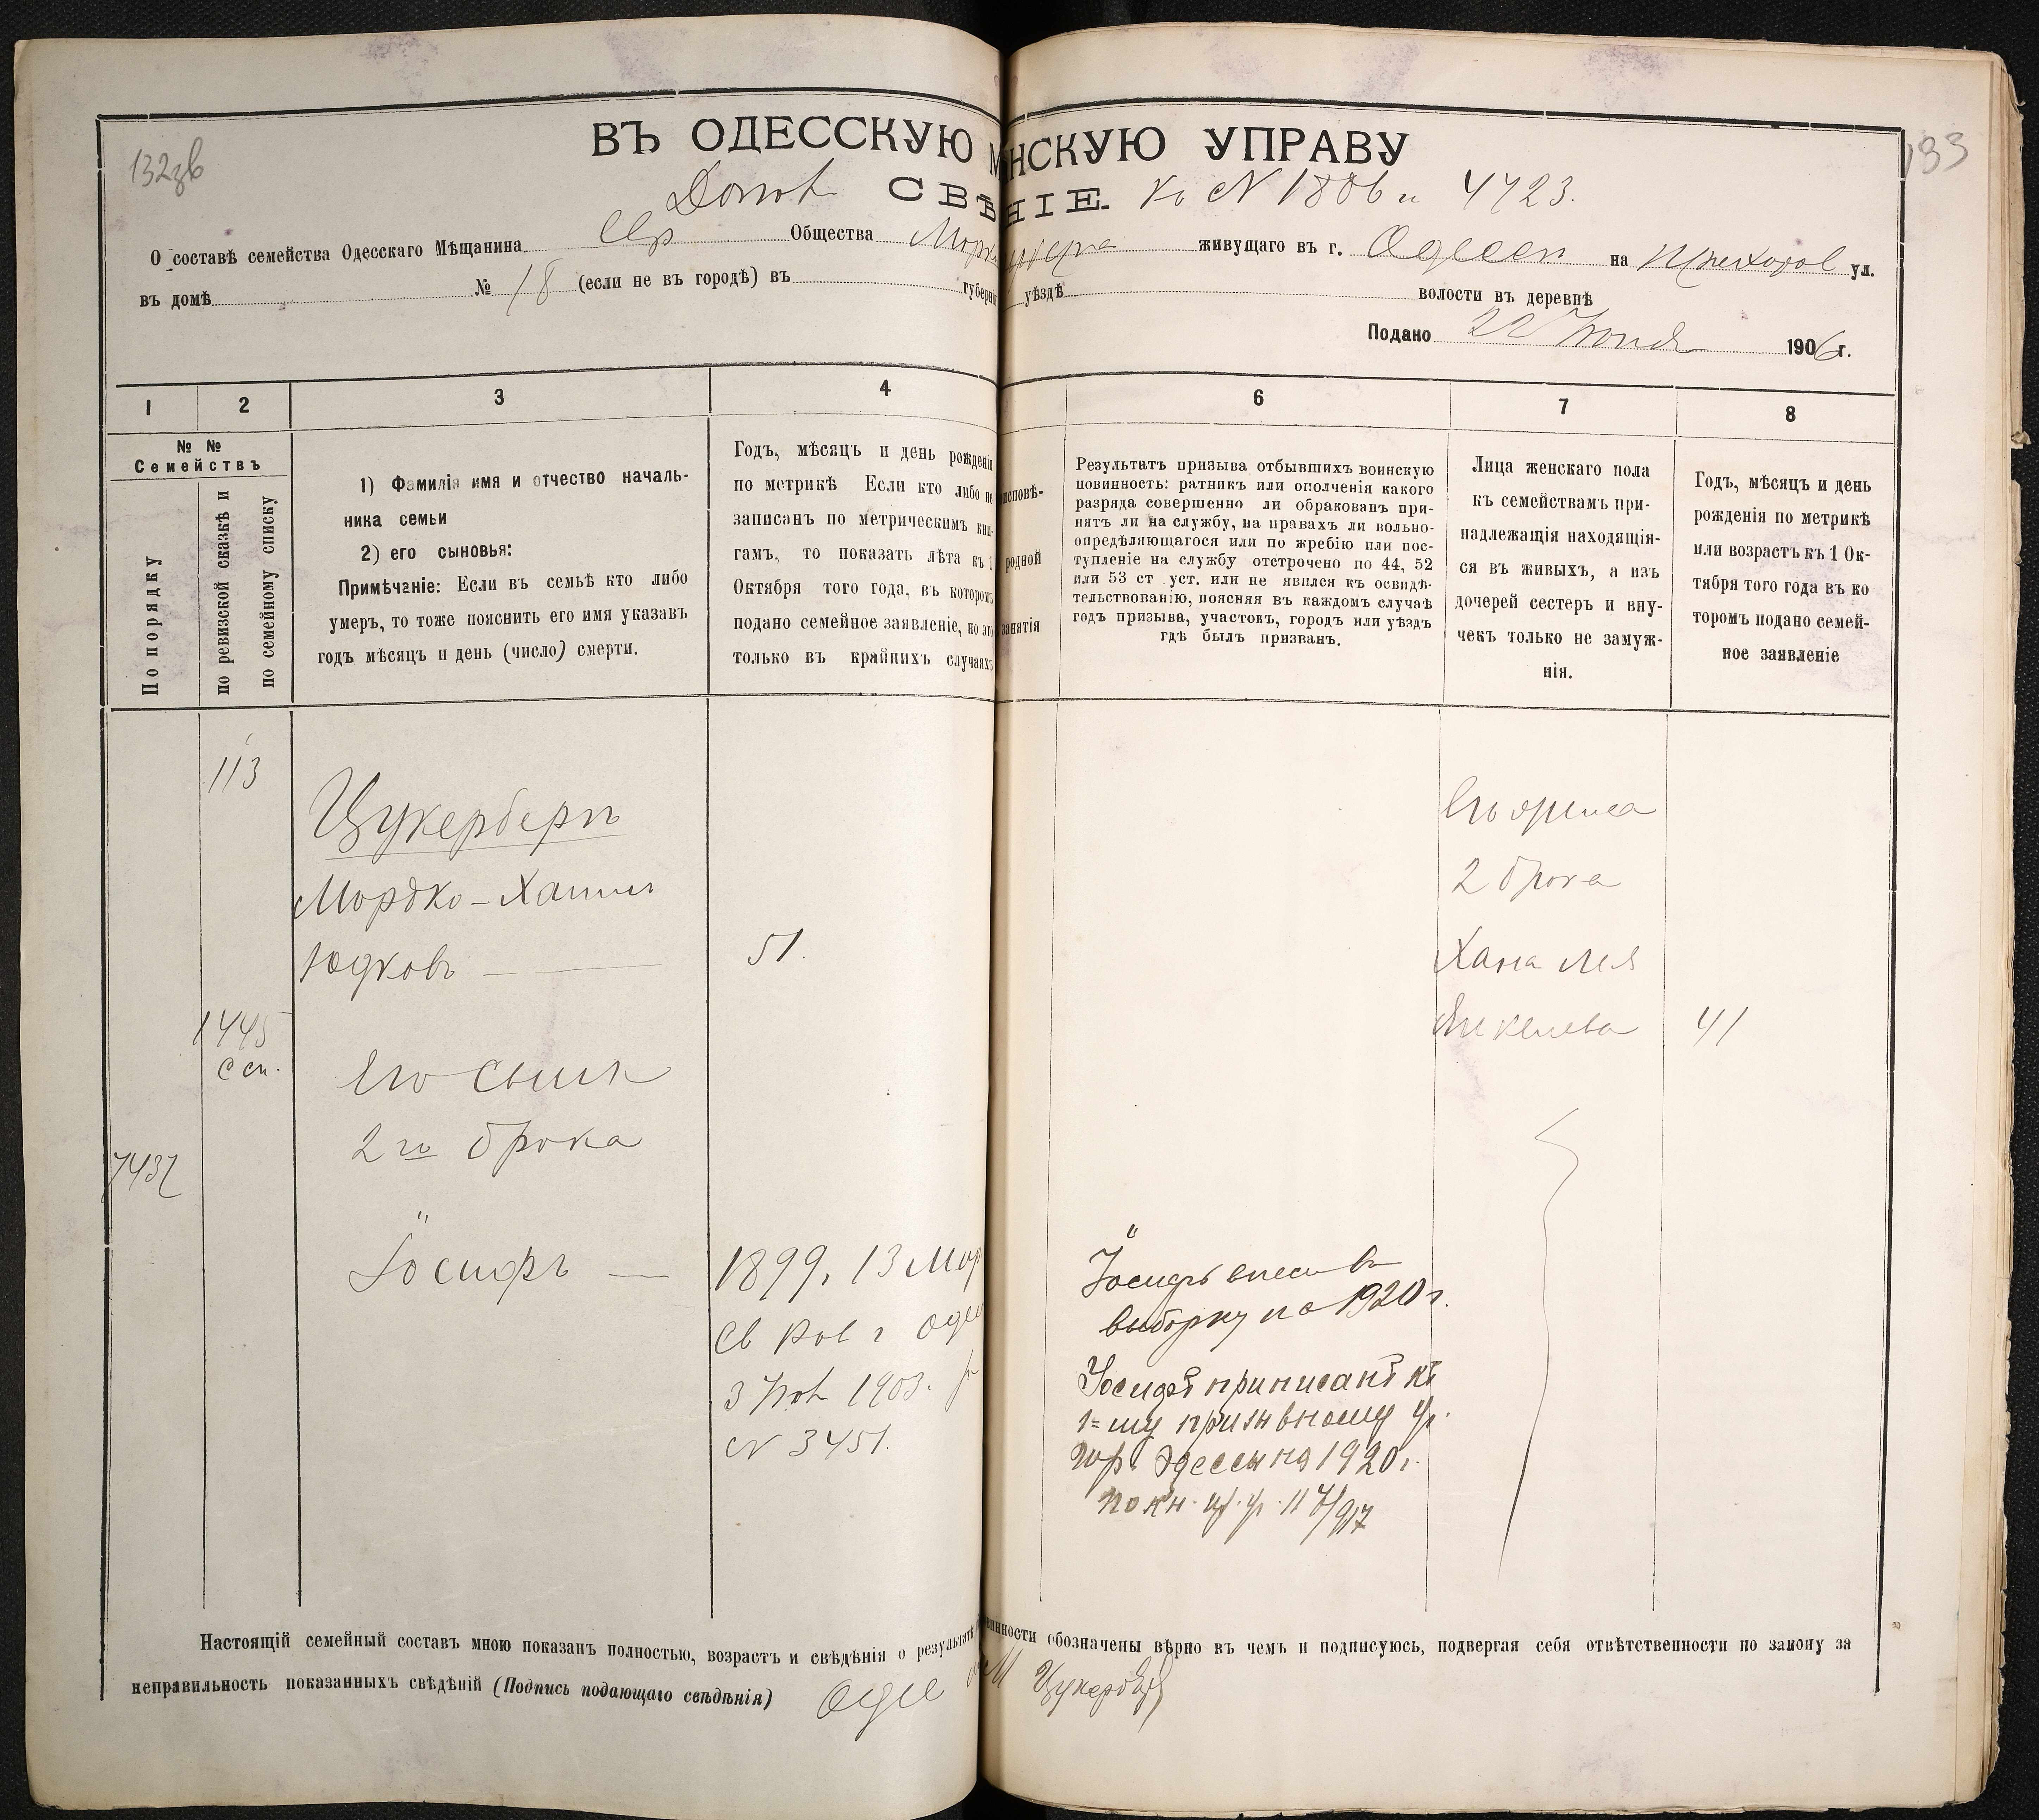 132зв
133
ВЪ ОДЕССКУЮ М НСКУЮ УПРАВУ
СВѢ НІЕ. Къ N 1886 и 4723.
О составѣ семейства Одесскаго Мѣщанина Евр Общества живущаго въ г. Одессѣ на ул.
въ домѣ № 18 (если не въ городѣ) въ губерніи уѣздѣ волости въ деревнѣ
Подано 22 1906 г.
1 2 3 4 6 7 8
№ №
Семействъ
По порядку
по ревизской сказкѣ и
по семейному списку
1) Фамилія имя и отчество началь-
ника семьи
2) его сыновья:
Примѣчаніе: Если въ семьѣ кто либо
умеръ, то тоже пояснить его имя указавъ
годъ мѣсяцъ и день (число) смерти.
Годъ, мѣсяцъ и день рожденія
по метрикѣ Если кто либо не
записанъ по метрическимъ кни-
гамъ, то показать лѣта къ 1
Октября того года, въ которомъ
подано семейное заявленіе, но это
только въ крайнихъ случаяхъ
исповѣ-
родной
занятія
Результатъ призыва отбывшихъ воинскую
повинность: ратникъ или ополченія какого
разряда совершенно ли обракованъ при-
нятъ ли на службу, на правахъ ли вольно-
опредѣляющагося или по жребію или пос-
тупленіе на службу отстрочено по 44, 52
или 53 ст уст. или не явился къ освидѣ-
тельствованію, поясняя въ каждомъ случаѣ
годъ призыва, участокъ, городъ или уѣздъ
гдѣ былъ призванъ.
Лица женскаго пола
къ семействамъ при-
надлежащія находящія-
ся въ живыхъ, а изъ
дочерей сестеръ и вну-
чекъ только не замуж-
нія.
Годъ, мѣсяцъ и день
рожденія по метрикѣ
или возрастъ къ 1 Ок-
тября того года въ ко
торомъ подано семей-
ное заявленіе
113
Цукербергъ
Мордко-Хаимъ
Юдковъ — 51.
1445
С сп.
Его сынъ
2го брака
7437
Іосифъ — 1899, 13 Мар
3 1903.
N 3451.
Іосифъ внесенъ въ
выборку на 1920 г.
Іосифъ приписанъ къ
1=му призывному уч.
гор. Одессы на 1920 г.
Его жена
2 брака
Хана Лея
Янкелева 41
Настоящій семейный составъ мною показанъ полностью, возрастъ и свѣдѣнія о результатѣ винности обозначены вѣрно въ чемъ и подписуюсь, подвергая себя отвѣтственности по закону за
неправильность показанныхъ свѣдѣній (Подпись подающаго свѣдѣнія) М Цукербергъ